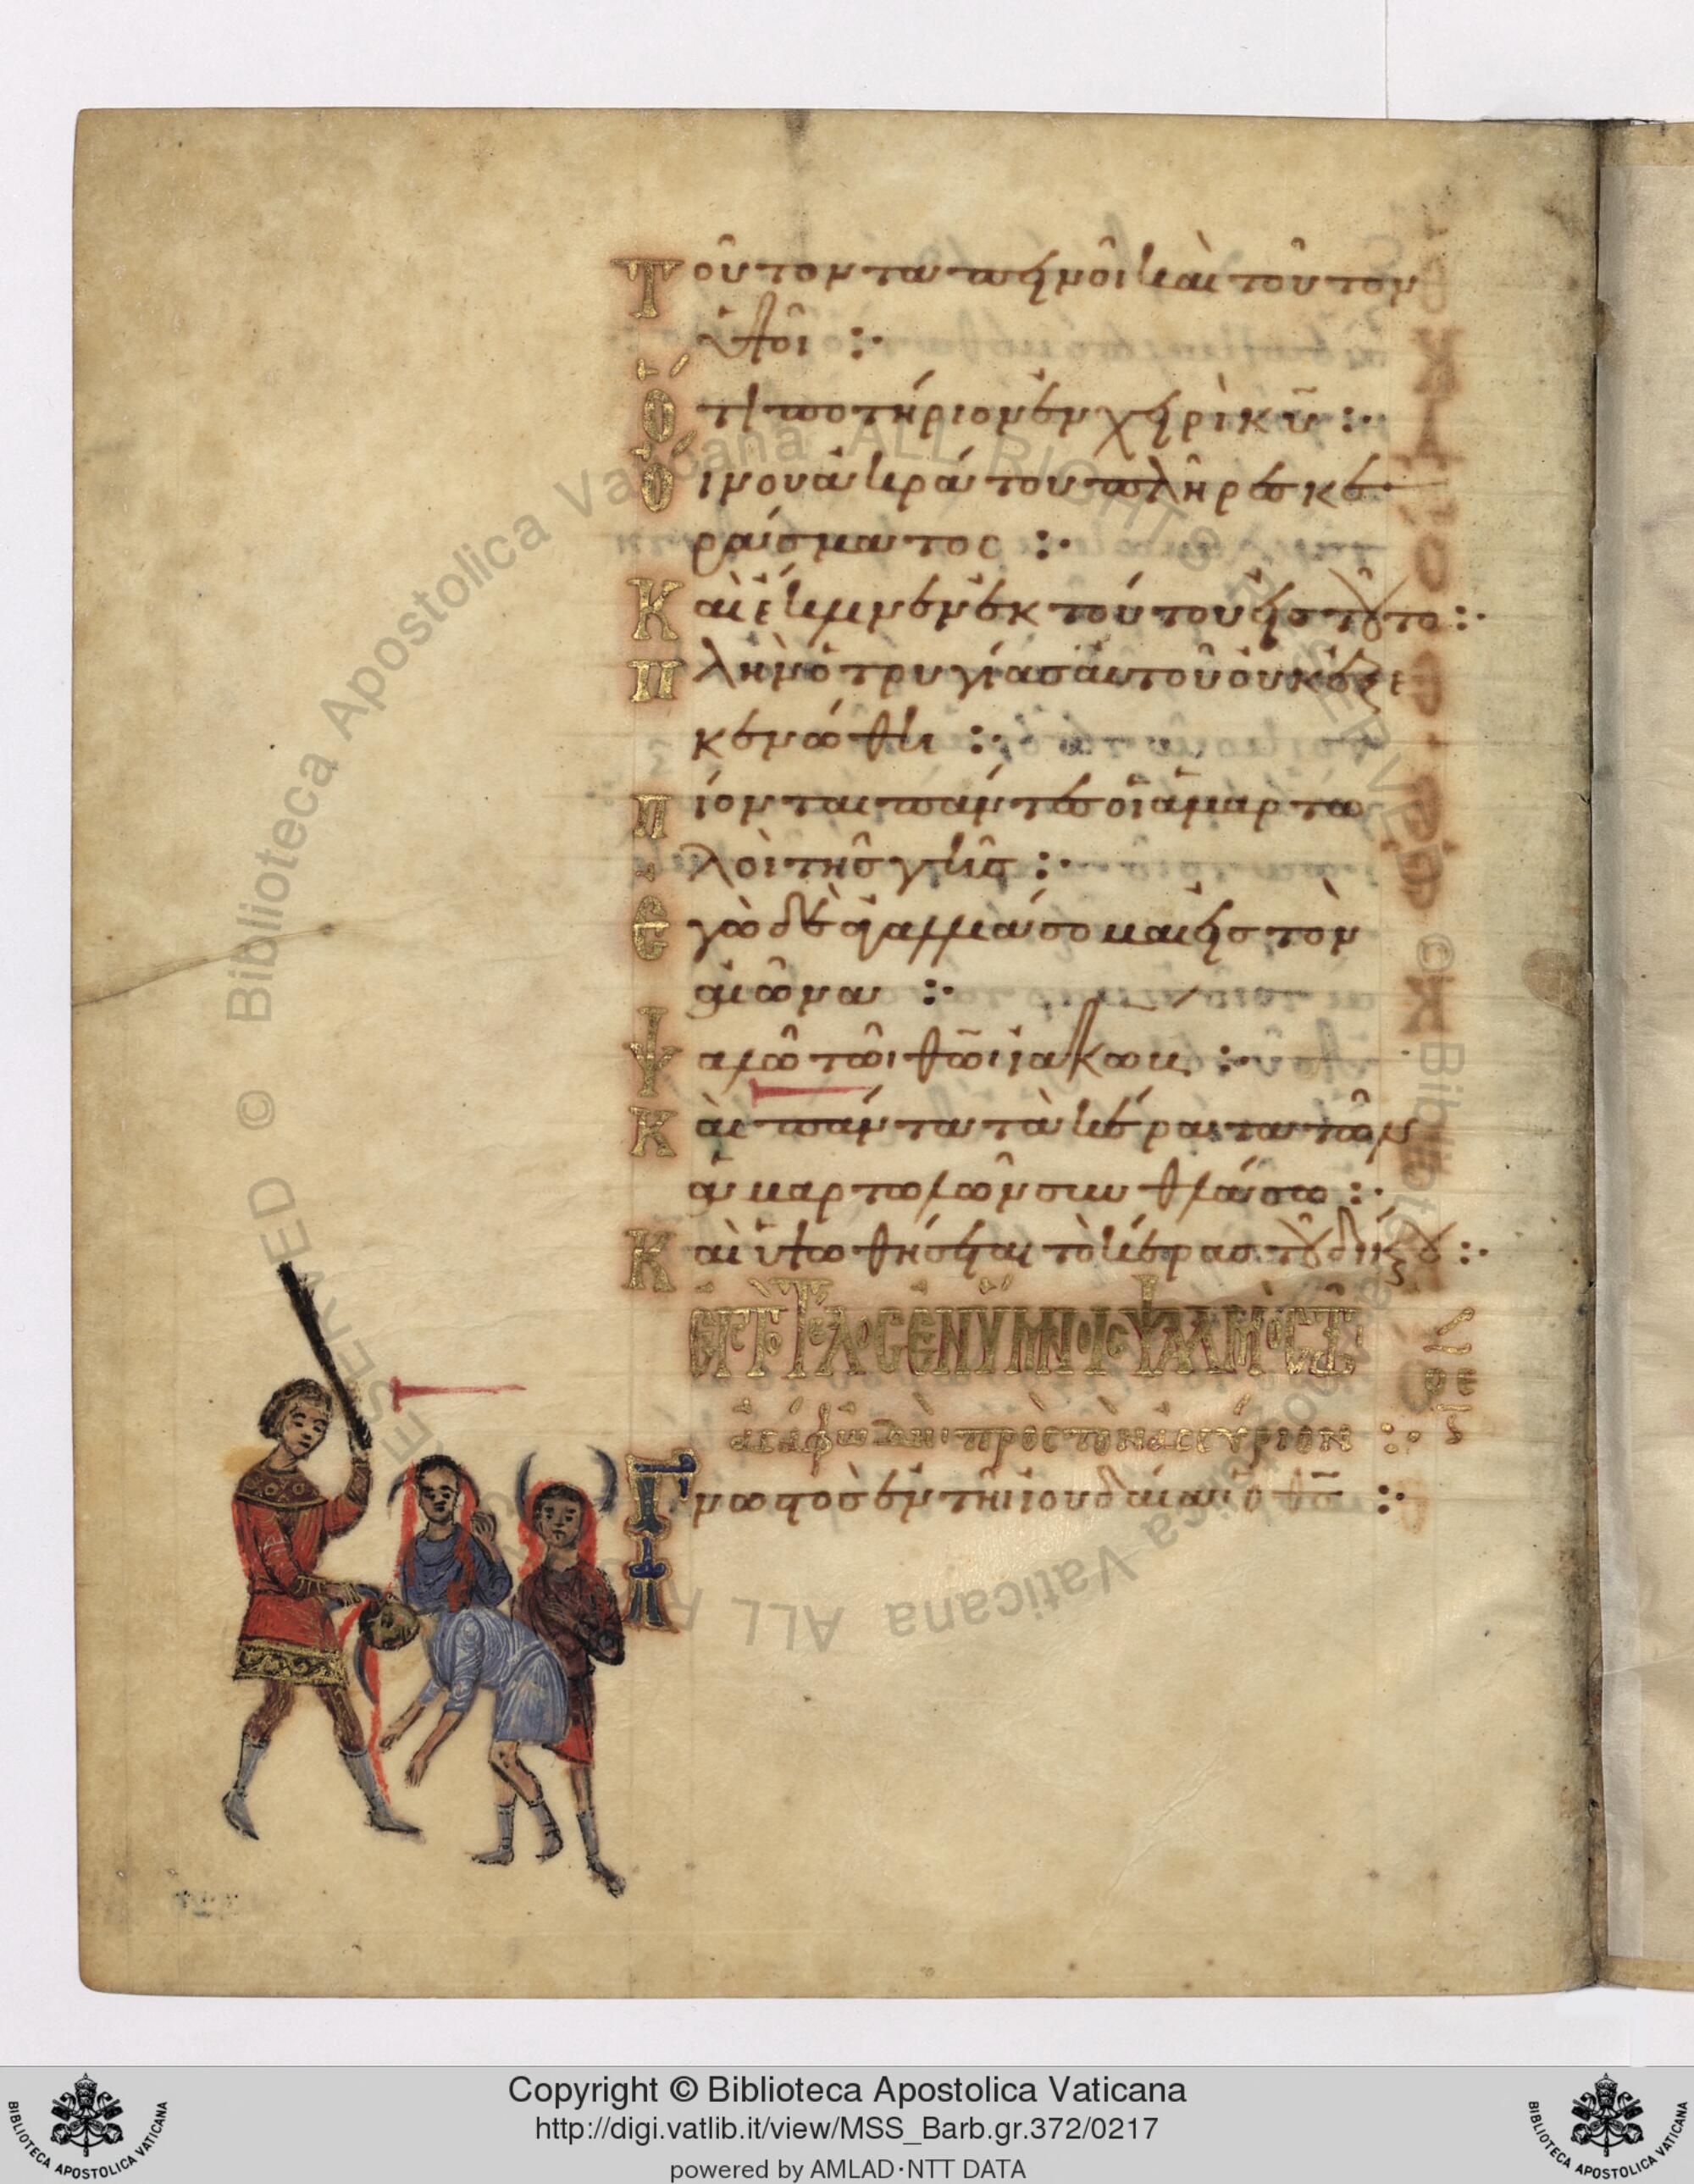 Τοῦτον ταπεινοῖ καὶ τοῦτον
ὑψοῖ :·
Ὅτι ποτήριον ἐν χειρὶ κῡ :·
Οἴνου ἀκράτου πλῆρες κε
ράσματος :·
Καὶ ἔκλινεν ἐκ τούτου εἰς τοῦτο :·
Πλὴν ὁ τρυγίας αὐτοῦ οὐκ ἐξε
κενώθη :·
Πίονται πάντες οἱ ἁμαρτω
λοὶ τῆς γῆς :·
Ἐγὼ δὲ ἀγαλλιάσομαι εἰς τὸν
αἰῶνα :·
Ψαλῶ τῶι θῶι ἰακώβ :·
Καὶ πάντα τὰ κέρατα τῶν
ἁμαρτωλῶν συνθλάσω :·
Καὶ ὑψωθήσεται τὸ κέρας τοῦ δικαίου :·
ΕΙΣ ΤῸ ΤΈΛΟΣ ἘΝ ὝΜΝΟΙΣ ΨΑΛΜῸΣ Τῶ
ἀσάφ ὠδὴ πρὸς τὸν ἀσσύριον :·
οε
Γνωστὸς ἐν τῆι ἰουδαίαι ὁ θς̄ :·
Copyright © Biblioteca Apostolica Vaticana
http://digi.vatlib.it/view/MSS_Barb.gr.372/0217
powered by AMLAD·NTT DATA
BIBLIOTECA APOSTOLICA VATICANA
BIBLIOTECA APOSTOLICA VATICANA
© Biblioteca Apostolica Vaticana ALL RIGHTS RESERVED
© Biblioteca Apostolica Vaticana ALL RIGHTS RESERVED